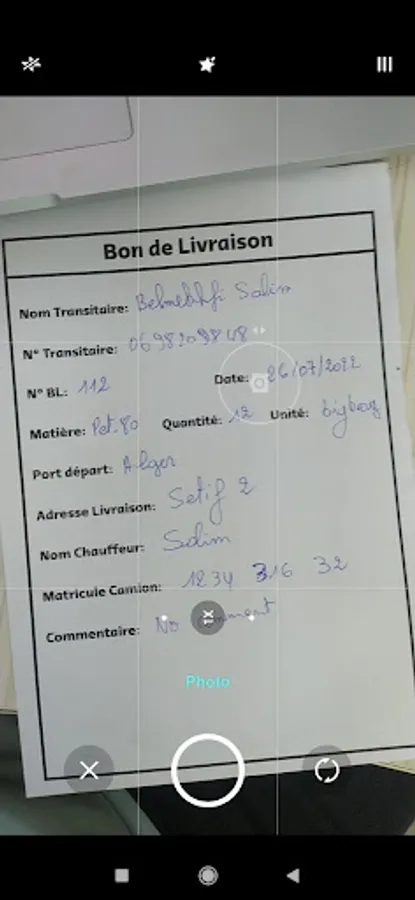 Bon de Livraison
Nom Transitaire: Salim
N° Transitaire: 0698209848
N° BL: 112 Date: 26/07/2022
Matière: Pet.80 Quantité: 12 Unité: bigbag
Port départ: Alger
Adresse Livraison: Setif 2
Nom Chauffeur: Salim
Matricule Camion: 1234 316 32
Commentaire: No comment
Photo